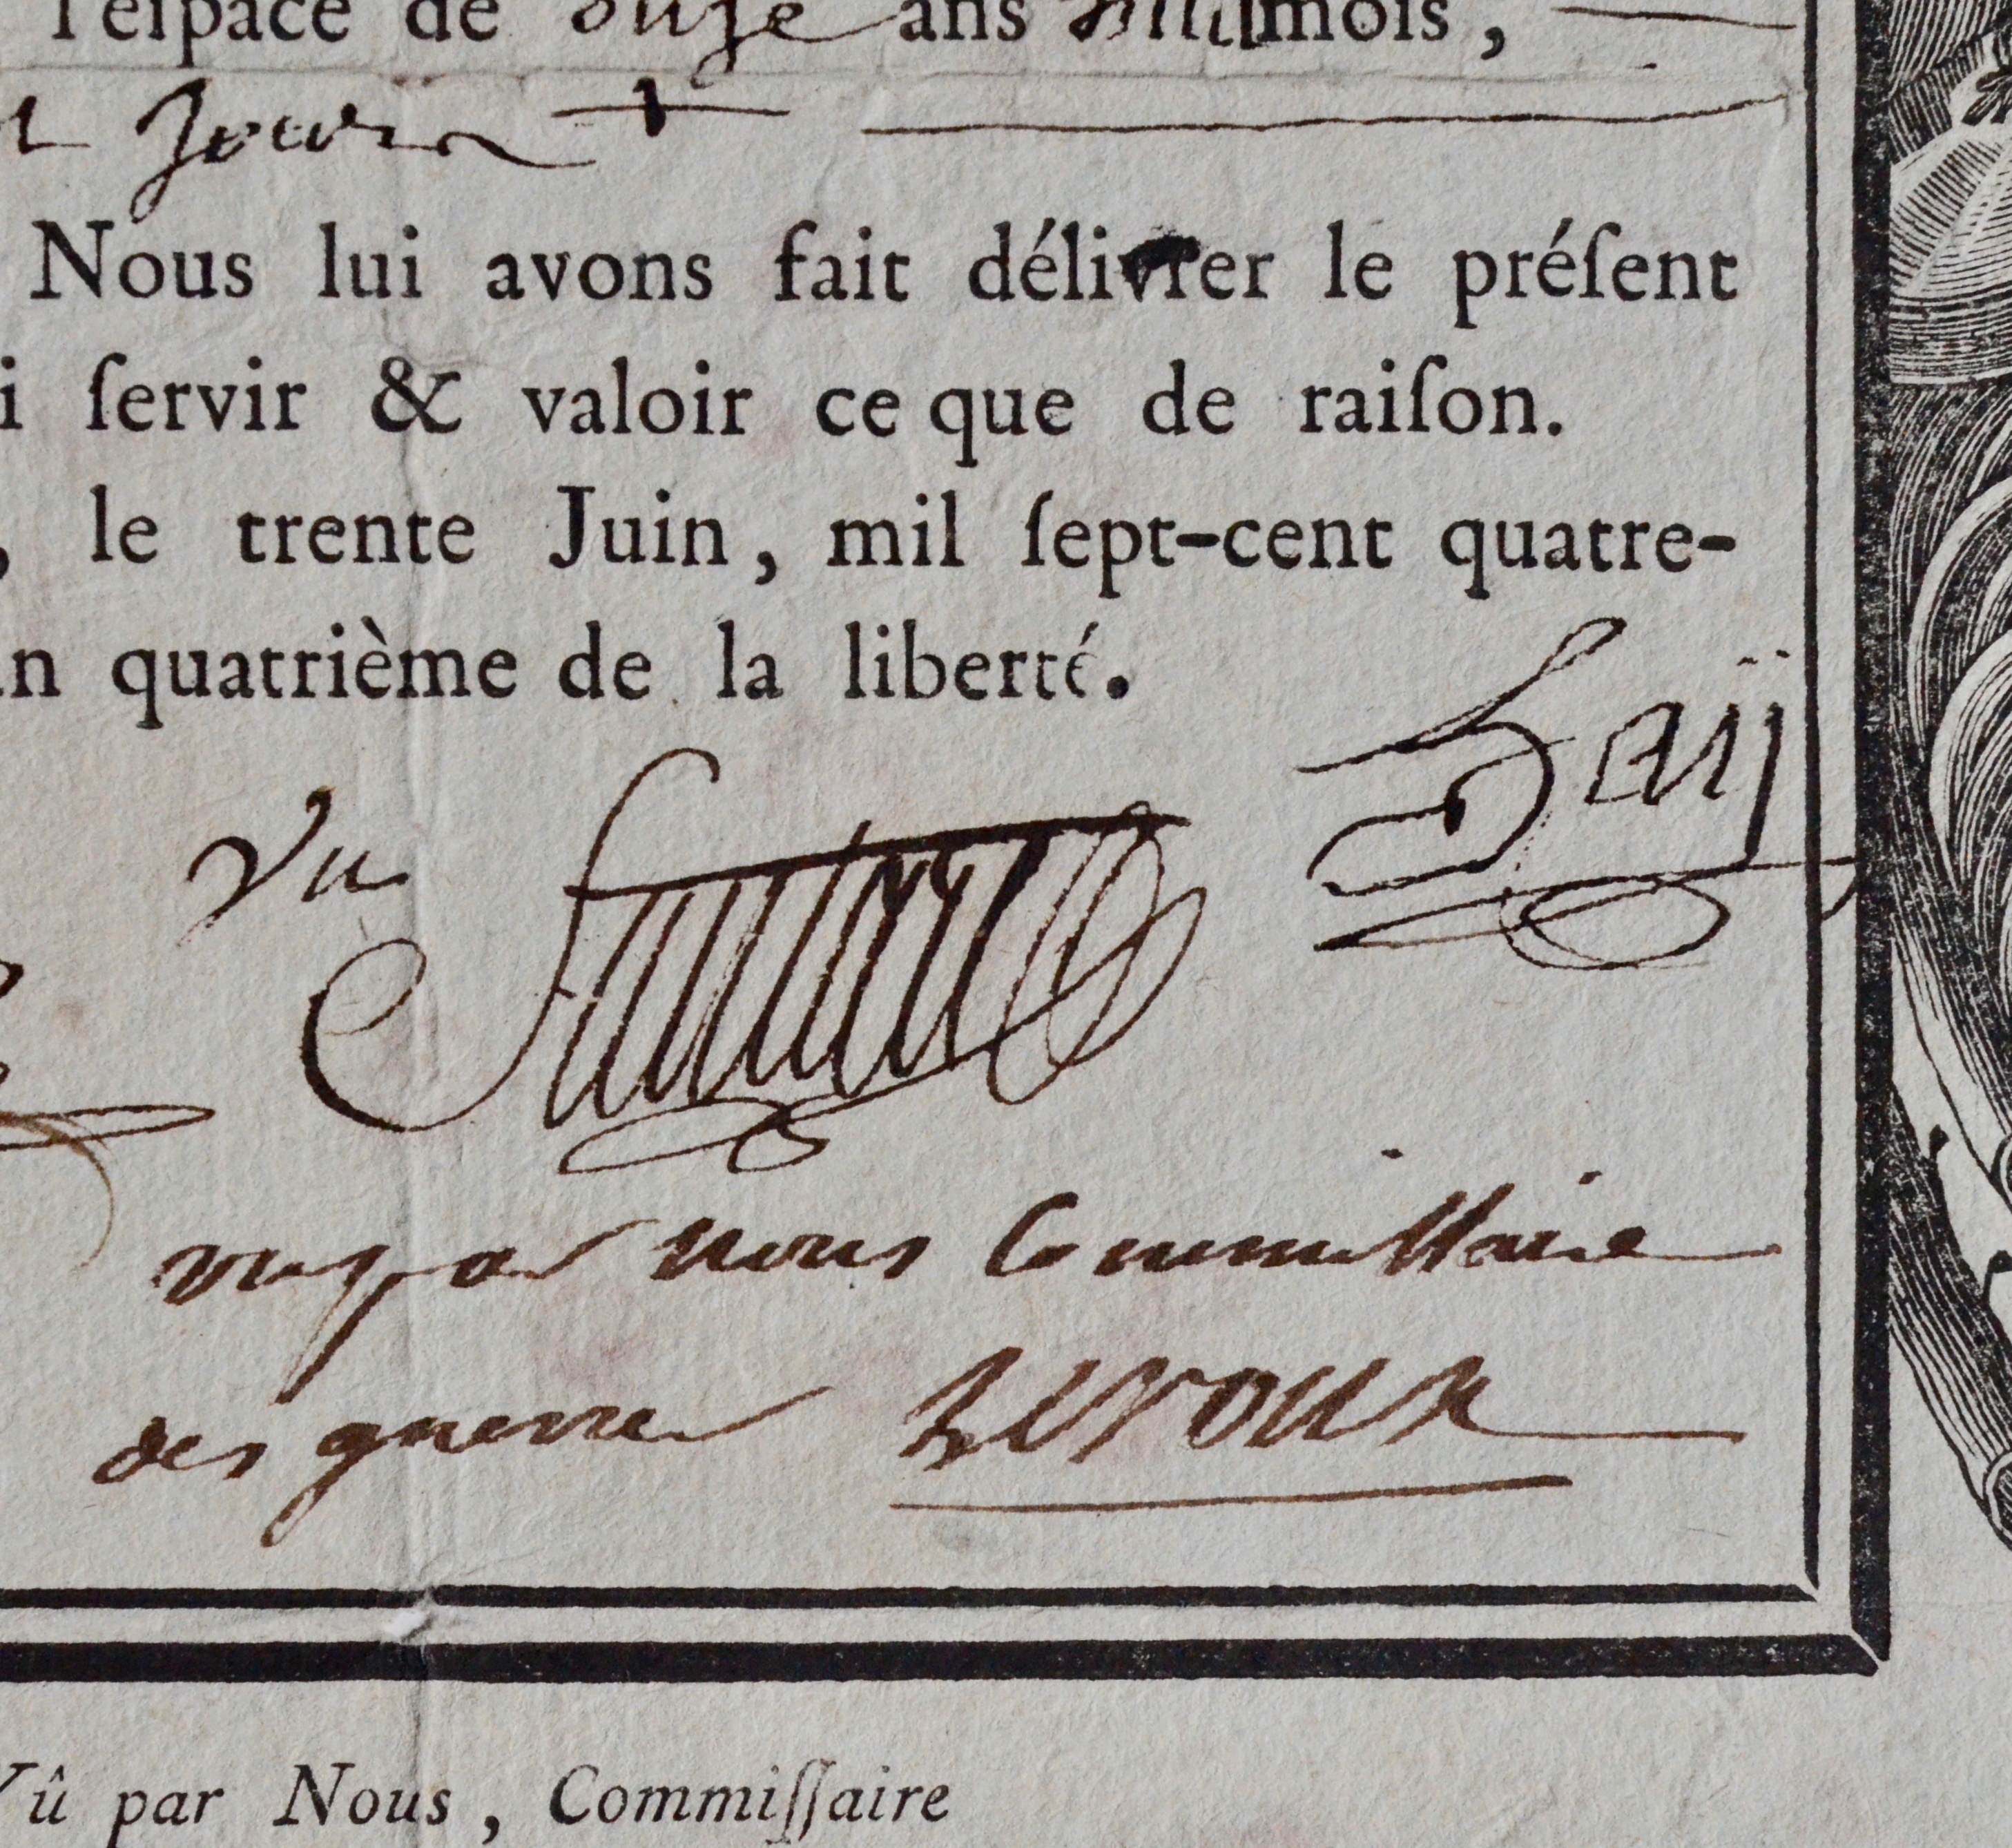 l'eſpace de onze ans huit mois,
Jours
Nous lui avons fait délivrer le préſent
i ſervir & valoir ce que de raiſon.
, le trente Juin, mil ſept-cent quatre-
n quatrième de la liberté.
Vu
vu par nous Commissaire
des guerre
Vû par Nous, Commiſſaire